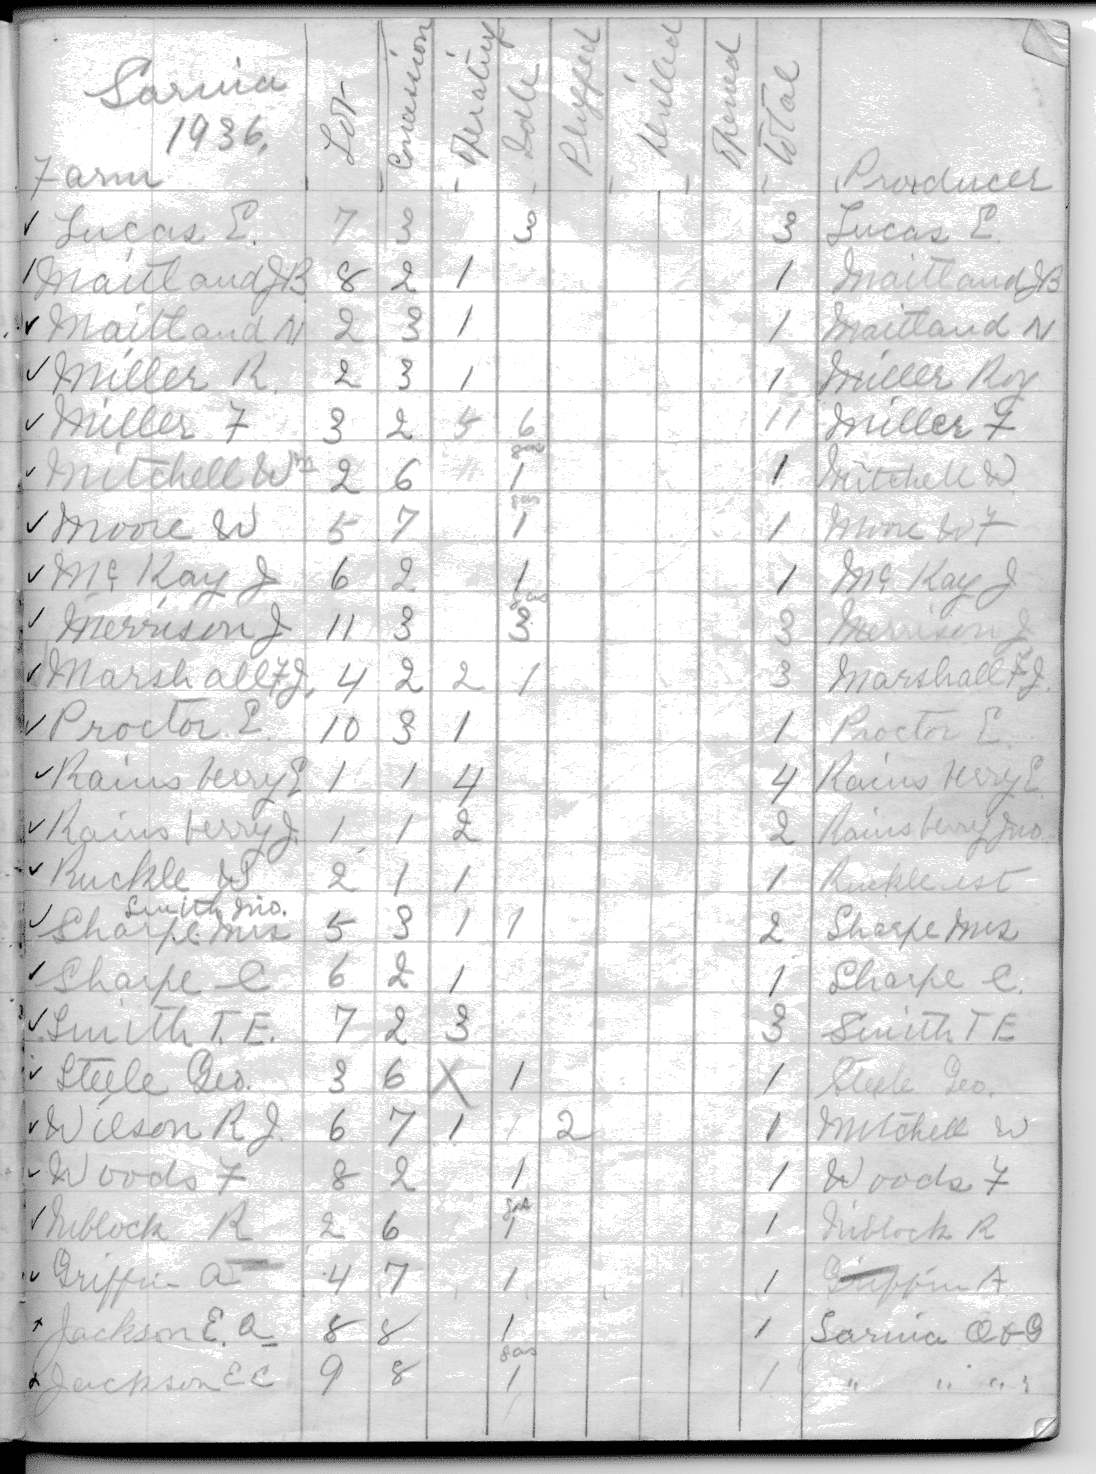 Sarnia
1936.
Farm Lot Concession Operating Idle Plugged Drilled Opened Total Producer
✓ Lucas E. 7 3 3 3 Lucas E.
✓ Maitland JB 8 2 1 1 Maitland JB
✓ Maitland N 2 3 1 1 Maitland N
✓ Miller R. 2 3 1 1 Miller Roy
✓ Miller F 3 2 5 6 11 Miller F
gas
✓ Mitchell Wm 2 6 1 1 Mitchell W.
gas
✓ Moore W 5 7 1 1 Moore W F
✓ Mc Kay J 6 2 1 1 Mc Kay J
gas
✓ Merrison J 11 3 3 3 Merrison J
✓ Marshall F J. 4 2 2 1 3 Marshall F J.
✓ Proctor E. 10 3 1 1 Proctor E.
✓ Rainsberry E 1 1 4 4 Rainsberry E.
✓ Rainsberry J. 1 1 2 2 Rainsberry Jno.
✓ Ruckle W 2 1 1 1 Ruckle est
Smith Jno.
✓ Sharpe Mrs 5 3 1 1 2 Sharpe Mrs
✓ Sharpe C 6 2 1 1 Sharpe C.
✓ Smith T. E. 7 2 3 3 Smith T E
✓ Steele Geo. 3 6 X 1 1 Steele Geo.
✓ Wilson R J. 6 7 1 1 2 1 Mitchell W
✓ Woods F 8 2 1 1 Woods F
gas
✓ Niblock R 2 6 1 1 Niblock R
✓ Griffin A 4 7 1 1 Griffin A
Jackson E. A 8 8 1 1 Sarnia O & G
gas
Jackson E C 9 8 1 1 " " " "